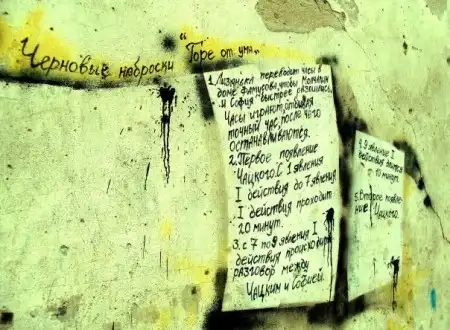 Черновые наброски "Горе от ума"
1. Лизанька переводит часы в
доме Фамусова, чтобы Молчалин
и София быстрее разошлись.
Часы играют, отбивая
точный час, после чего
останавливаются.
2. Первое появление
Чацкого. С 1 явления
I действия до 7 явления
I действия проходит
20 минут.
3. с 7 по 9 явления I
действия происходит
разговор между
Чацким и Софией.
4. 9 явление I
действия длится
10 минут.
5. Второе появле-
ние Чацкого.